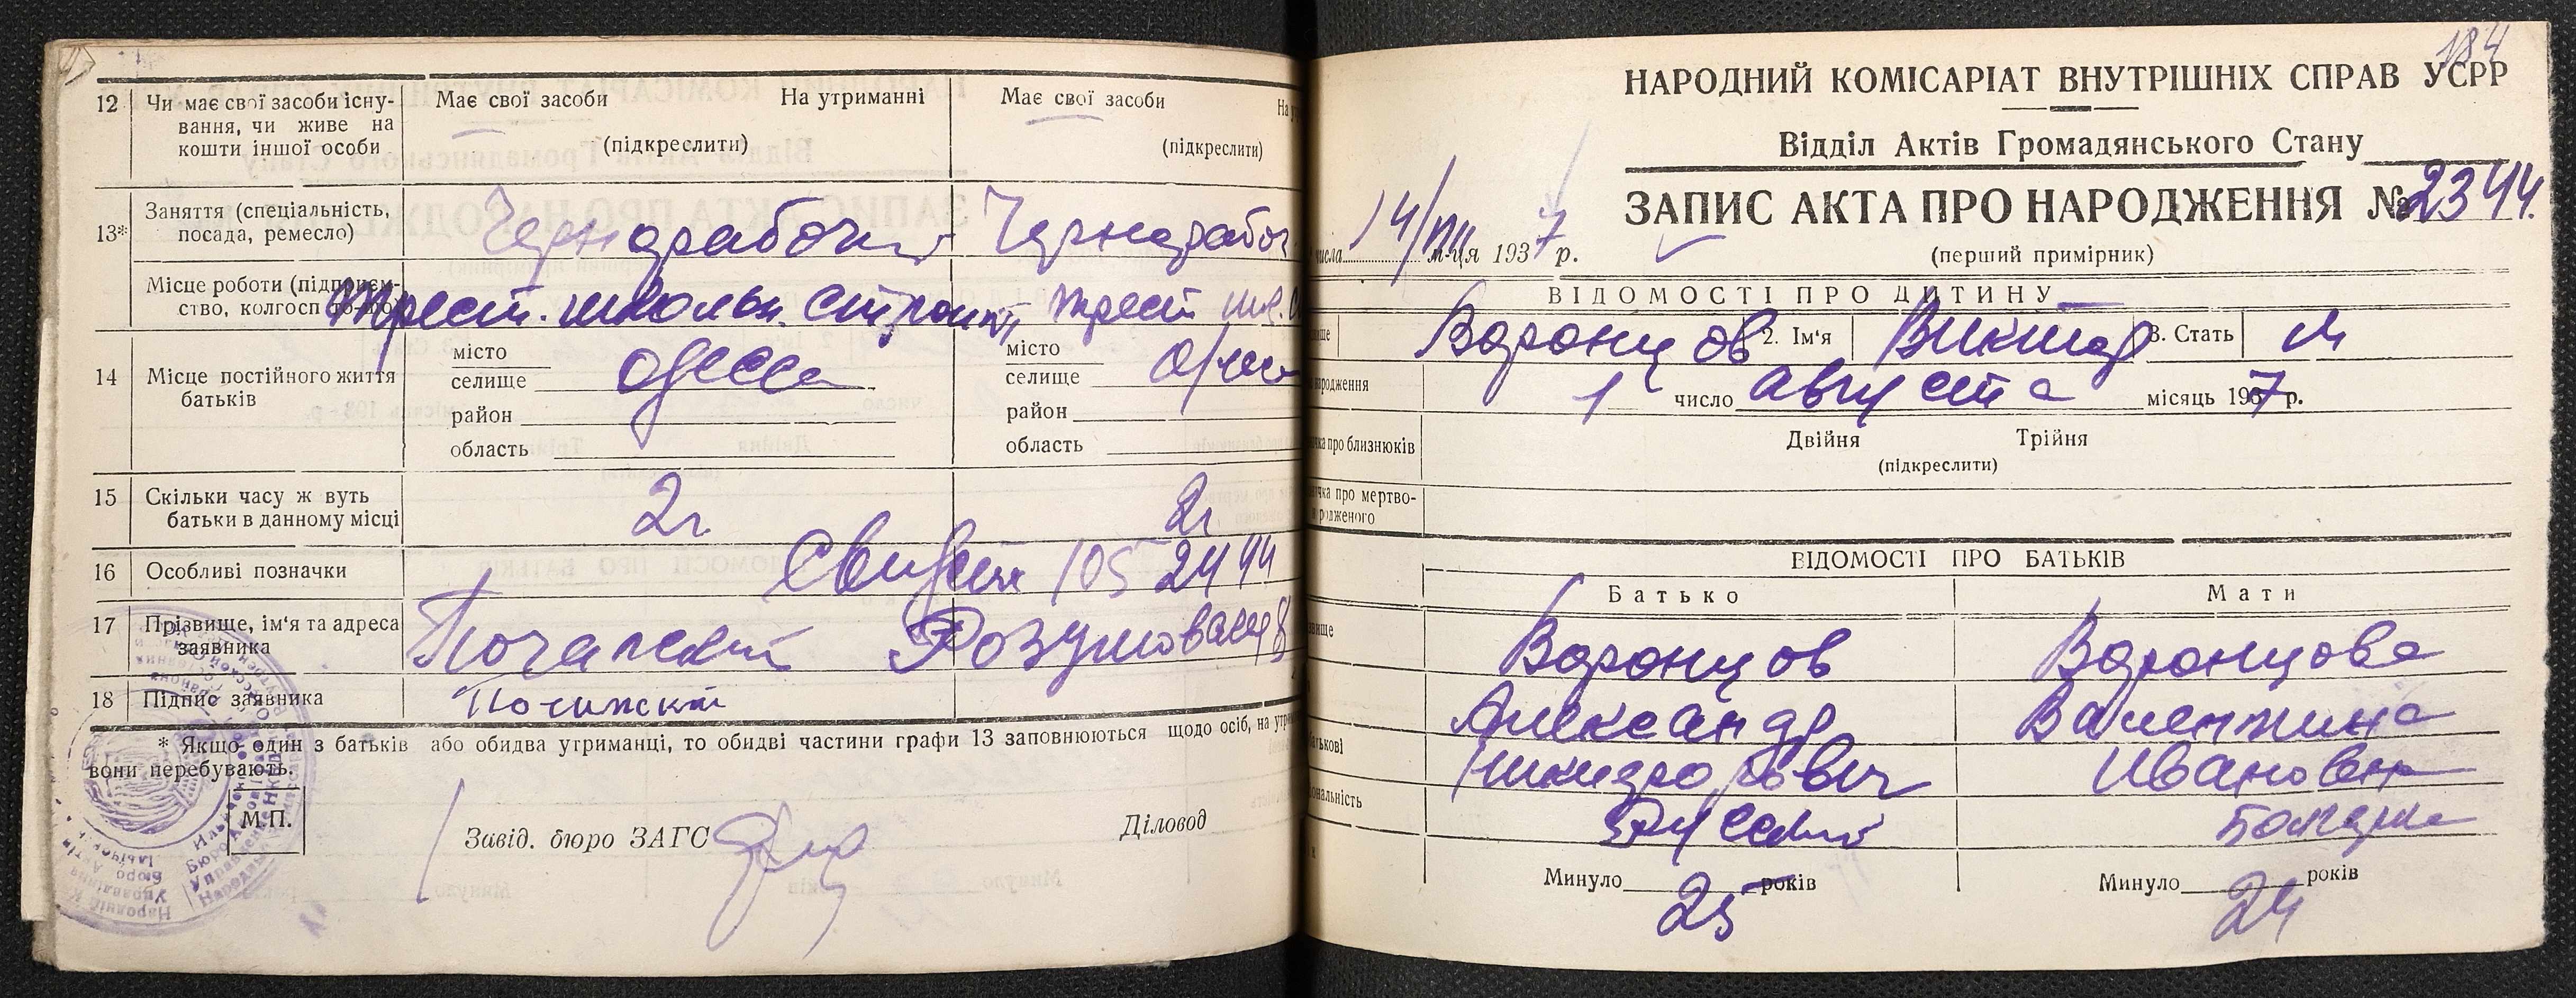 12 Чи має свої засоби існування, чи живе на кошти іншої особи
Має свої засоби На утриманні
(підкреслити)
Має свої засоби На
(підкреслити)
13* Заняття (спеціальність, посада, ремесло)
Чернорабочий Чернорабоч
Місце роботи (підприємство, колгосп то-що)
Трест. школьн. строит трест шк. с
14 Місце постійного життя батьків
місто
селище Одесса
район
область
місто
селище
район
область
15 Скільки часу ж вуть батьки в данному місці
2г 2г
16 Особливі позначки
Свидет 105
17 Прізвище, ім‘я та адреса заявника
18 Підпис заявника
* Якщо один з батьків або обидва утриманці, то обидві частини графи 13 заповнюються щодо осіб, на
вони перебувають.
М.П.
Завід. бюро ЗАГС
Діловод
184
НАРОДНИЙ КОМІСАРІАТ ВНУТРІШНІХ СПРАВ УСРР
Відділ Актів Громадянського Стану
ЗАПИС АКТА ПРО НАРОДЖЕННЯ № 2344.
числа 14/VIII м-ця 1937 р.
(перший примірник)
ВІДОМОСТІ ПРО ДИТИНУ
Воронцов 2. Ім‘я Виктор 3. Стать м
1 число августа місяць 1937 р.
про близнюків Двійня Трійня
(підкреслити)
про мертво-
родженого
ВІДОМОСТІ ПРО БАТЬКІВ
Батько Мати
Воронцов Воронцова
Александр Валентина
Никидрорович Ивановна
Русский
Минуло 25 років Минуло 24 років